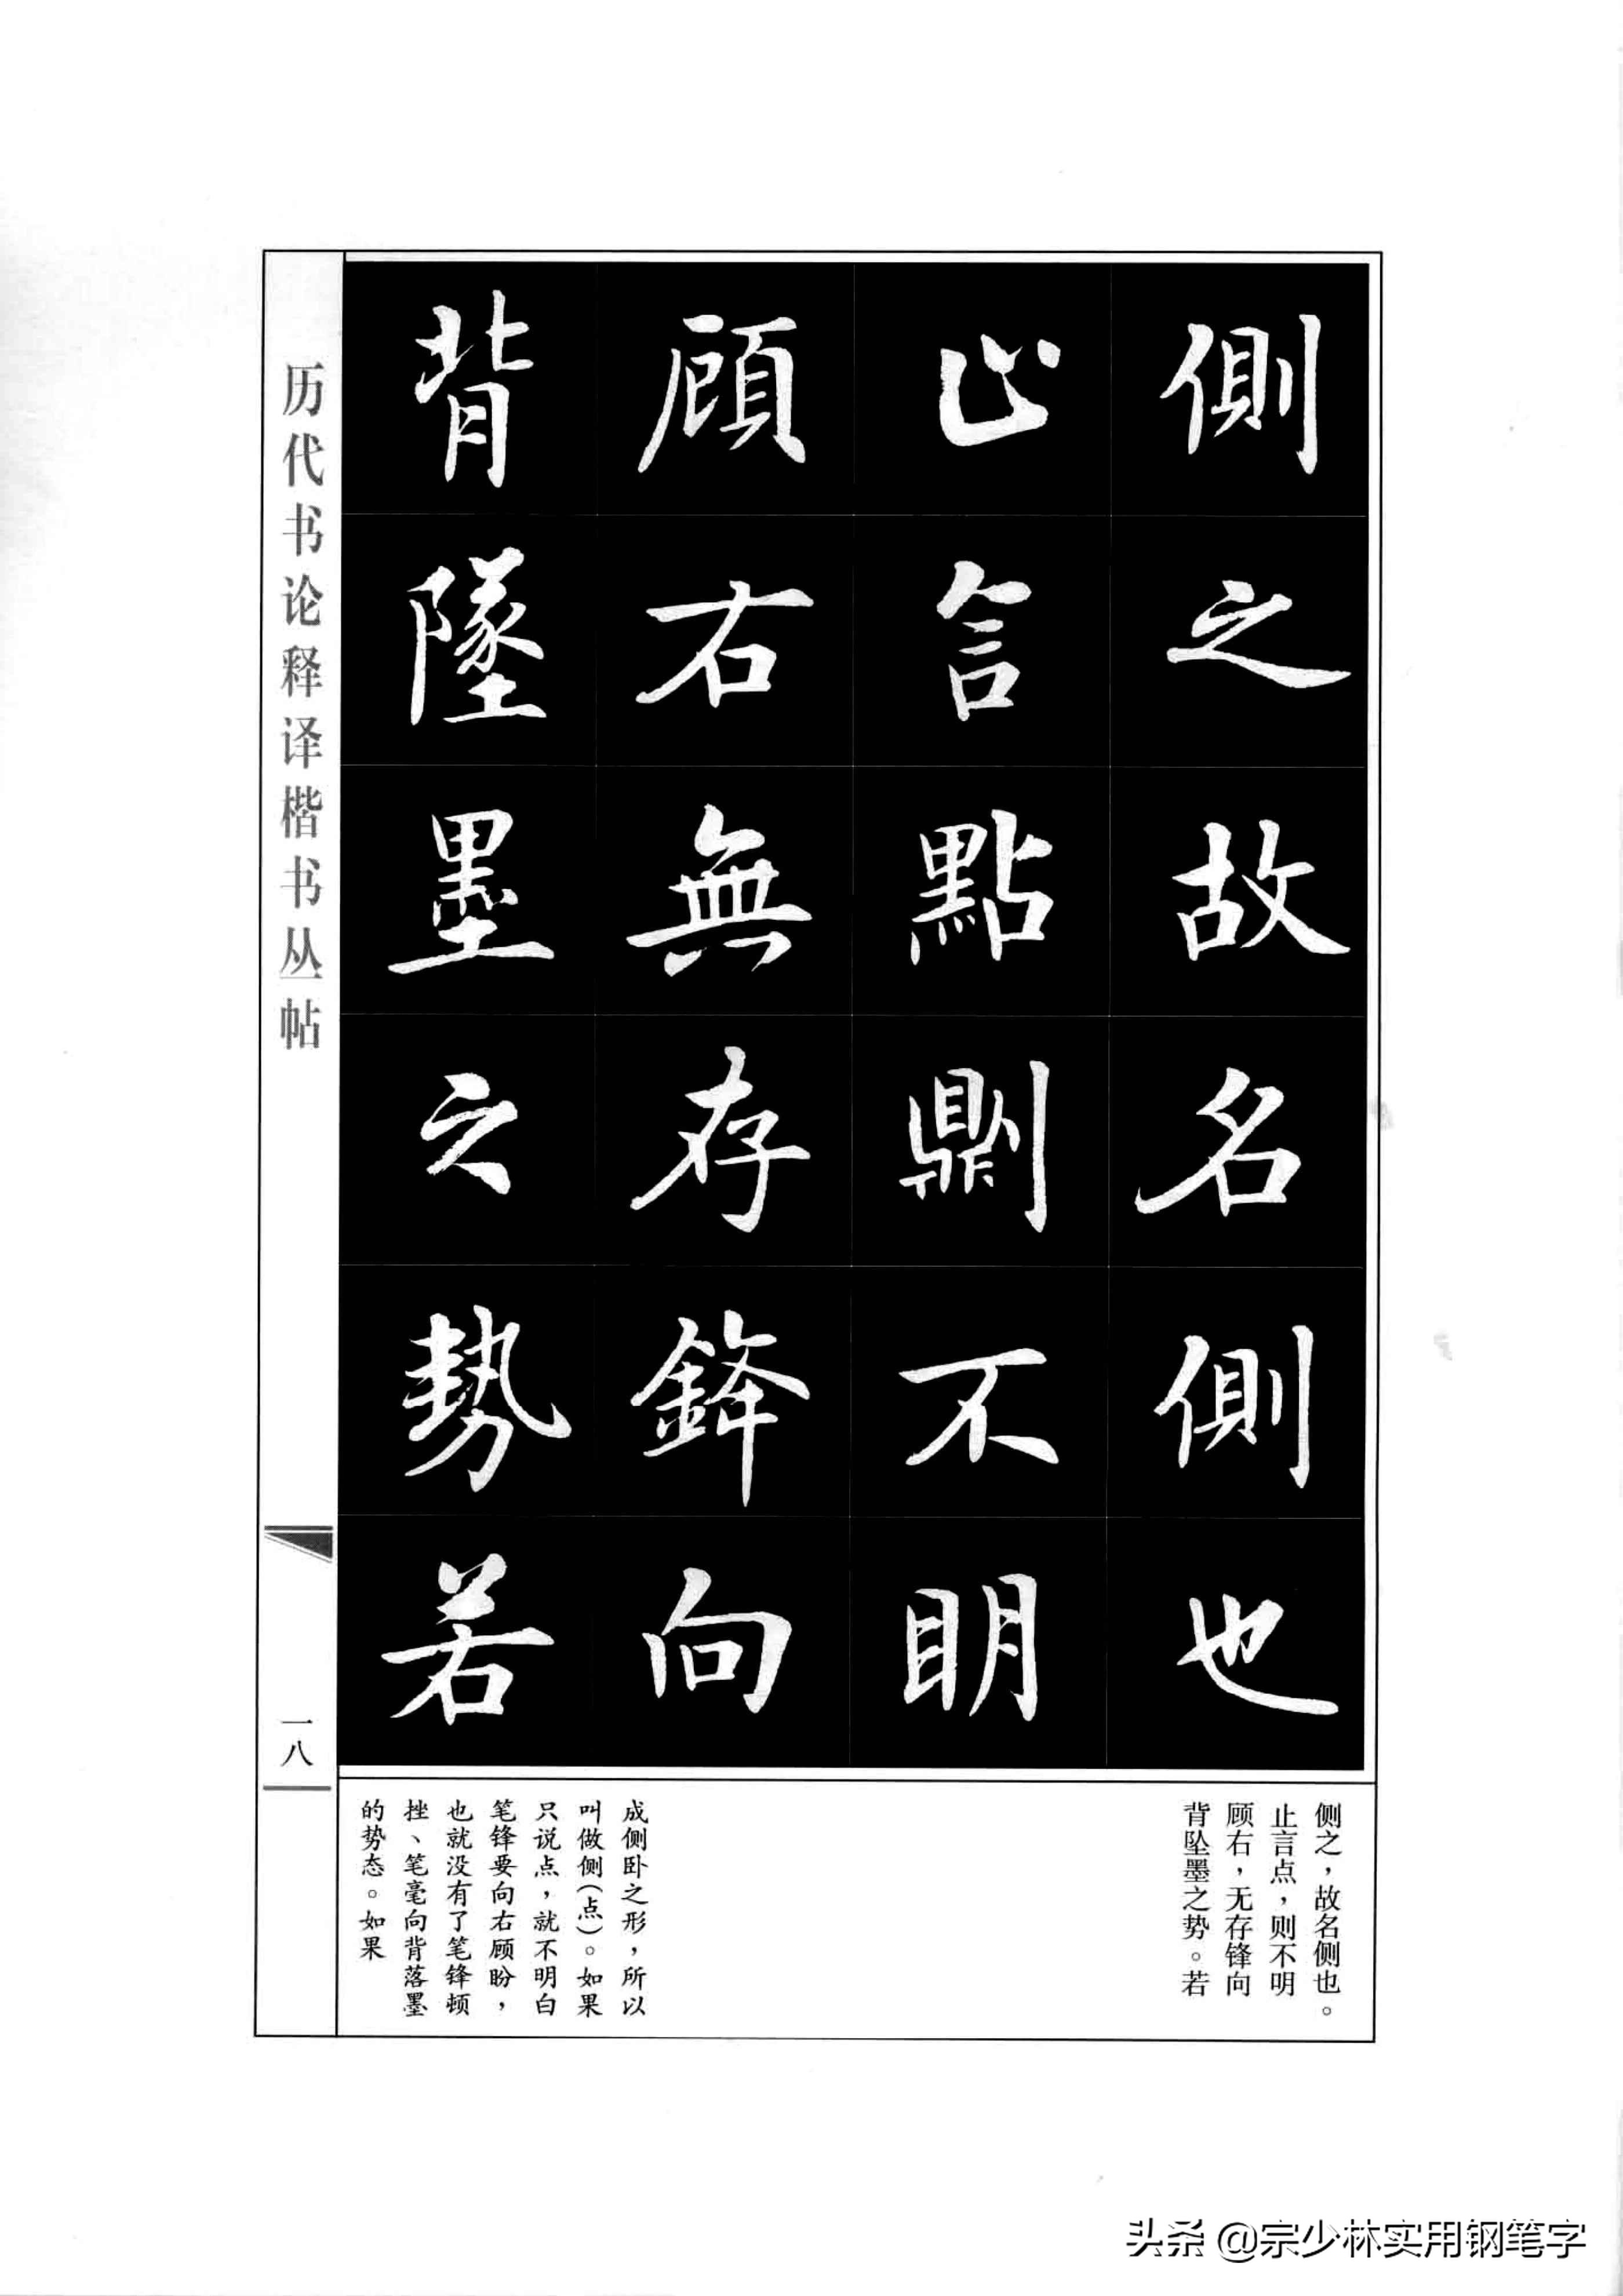 側之故名側也
止言點鼎刂不明
顧右無存鋒向
背墜墨之勢若
历代书论释译楷书丛帖
一八
侧之，故名侧也。
止言点，则不明
顾右，无存锋向
背坠墨之势。若
成侧卧之形，所以
叫做侧（点）。如果
只说点，就不明白
笔锋要向右顾盼，
也就没有了笔锋顿
挫、笔毫向背落墨
的势态。如果
头条 @宗少林实用钢笔字